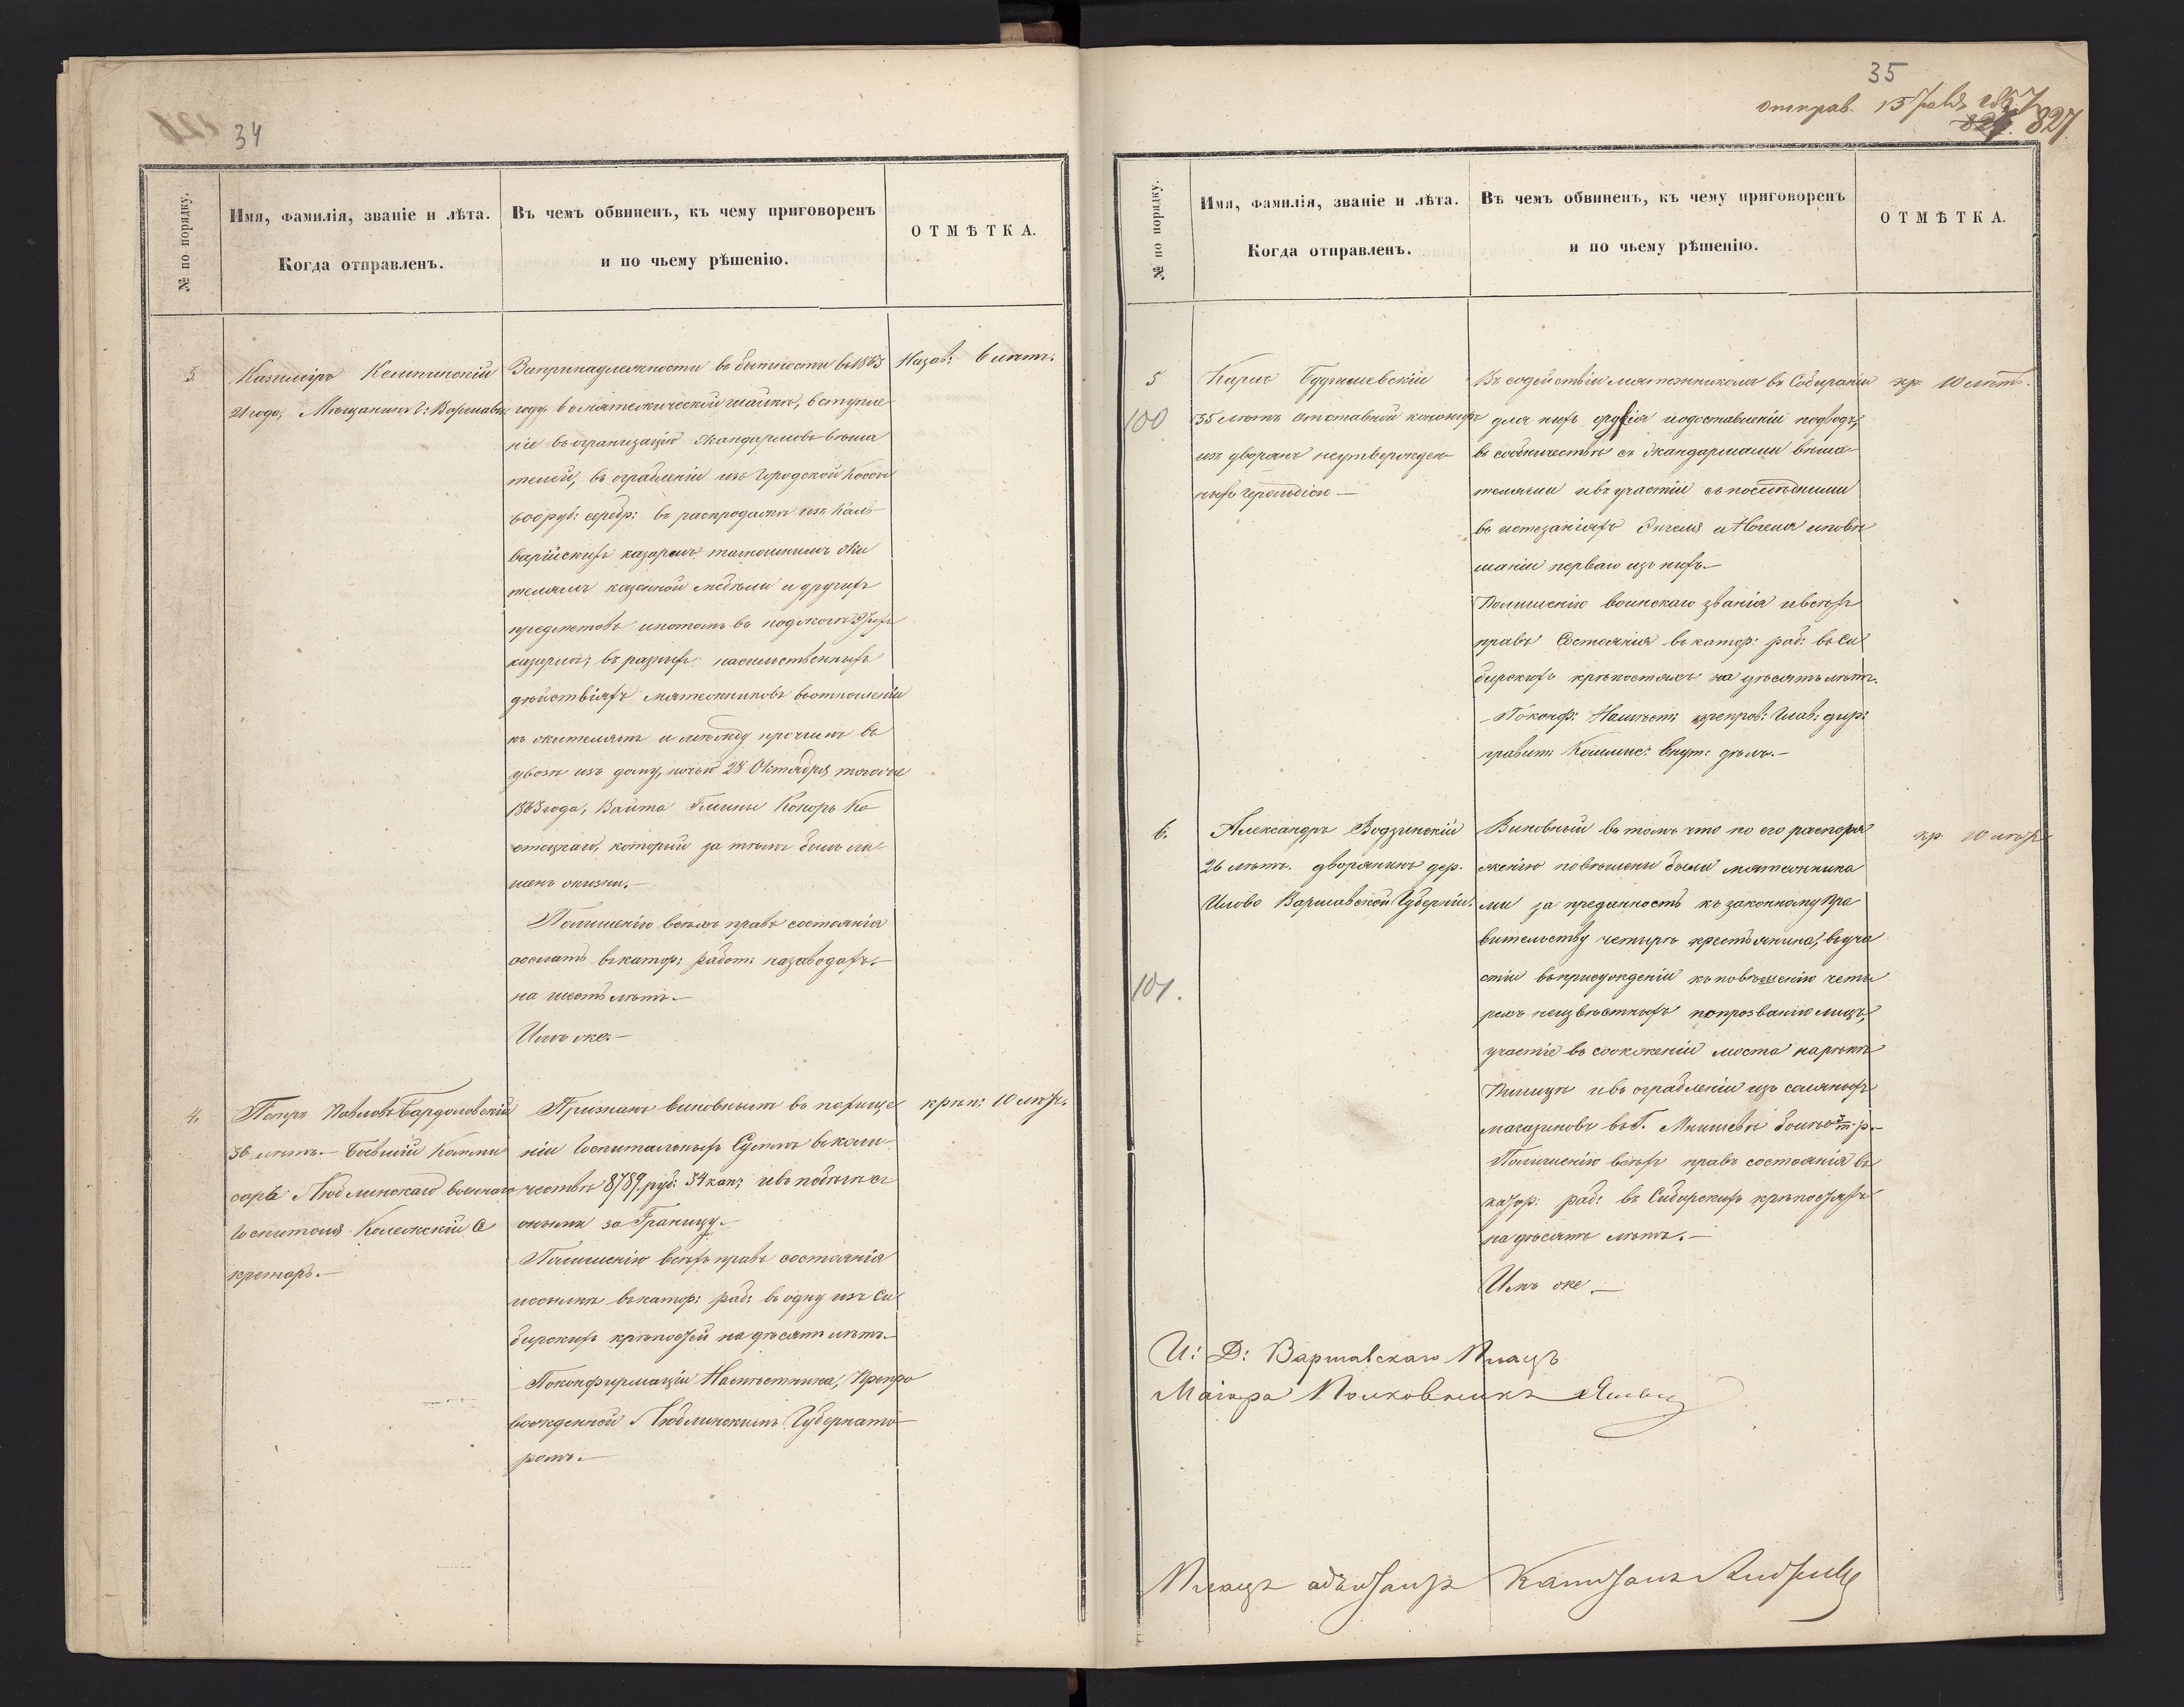 34
№ по порядку.
Имя, фамилія, званіе и лѣта.
Когда отправленъ.
Въ чемъ обвиненъ, къ чему приговоренъ
и по чьему рѣшенію.
ОТМѢТКА.
3.
Казимiръ
21 года, Мѣщанинъ г: Варшавы
Запринадлежности въ бытности въ 1863
году въ мятежнической шайкѣ, вступле
ніе въ организацію жандармовъ вѣша
телей, въ ограбленіи изъ городской кассы
600 руб: серебр: въ распродажѣ изъ Каль-
варiйскихъ казармъ тамошнимъ жи
телямъ казенной мебели и другихъ
предметовъ и потомъ въ поджогѣ этихъ
казармъ; въ разныхъ насильственныхъ
дѣйствіяхъ мятежниковъ въ отношеніи
къ жителямъ и между прочимъ въ
увозѣ изъ дому, ночью 28 Октября того же
1863 года, Войта Гмины
который за тѣмъ былъ ли-
шенъ жизни.—
Полишенію всѣхъ правъ состоянія
сослать въ катор: работ: на заводахъ
на шесть лѣтъ.—
Имъ же.—
Назав: 6 лѣтъ.
4.
Петръ Павловъ Бардоловскій
36 лѣтъ.— Бывшій Комми
саръ Люблинскаго военнаго
госпиталя Колежскій Се
кретарь.—
Признанъ виновнымъ въ похище
ніи Госпитальныхъ Суммъ въ коли-
чествѣ 8789 руб: 54 коп: и въ побѣгѣ съ
оными за Границу.—
Полишенію всѣхъ правъ состоянія
ссылкѣ въ катор: раб: въ одну изъ Си
бирскихъ крѣпостей на десять лѣтъ.—
Поконфирмаціи Намѣстника, Препро
вожденной Люблинскимъ Губернато
ромъ.—
крѣп: 10 лѣтъ.
35
отправ. 15
827.
№ по порядку.
Имя, фамилія, званіе и лѣта.
Когда отправленъ.
Въ чемъ обвиненъ, къ чему приговоренъ
и по чьему рѣшенію.
ОТМѢТКА.
5
100
Карлъ
35 лѣтъ отставной
изъ дворянъ неутвержден-
ныхъ герольдіею —
Въ содействіи мятежникамъ въ Собираніи
для нихъ оружія и доставленіи подводъ,
въ сообщничествѣ съ жандармами вѣша-
телями и въ участіи съ послѣдними
въ истезаніяхъ
шаніи перваго изъ нихъ.—
Полишенію воинскаго званія и всѣхъ
правъ Состоянія въ катор: раб: въ Си
бирскихъ крѣпостяхъ на десять лѣтъ.
— Поконф: Намѣст: препров: Глав: дир:
правит: Коммис: внут: дѣлъ.—
кр. 10 лѣтъ.
6.
101.
Александръ Водзинскій
26 лѣтъ. дворянинъ дер.
Илово Варшавской Губерніи.
Виновный въ томъ что по его распоря
женію повѣшены были мятежника
ми за преданность къ законному Пра
вительству четыре крестьянина, въ уча
стіи въ присужденіи къ повѣшенію четы
рехъ неизвѣстныхъ по прозванію лицъ,
участіе въ сожженіи моста на рѣкѣ
Пилицѣ и въ ограбленіи изъ соляныхъ
магазиновъ въ Г. Мнишевѣ
Полишенію всѣхъ правъ состоянія въ
катор: раб: въ Сибирскихъ крѣпостяхъ
на десять лѣтъ.—
Имъ же —
кр. 10 лѣтъ
И: Д: Варшавскаго Плацъ
Маіора Полковникъ
Плацъ адъютантъ Капитанъ